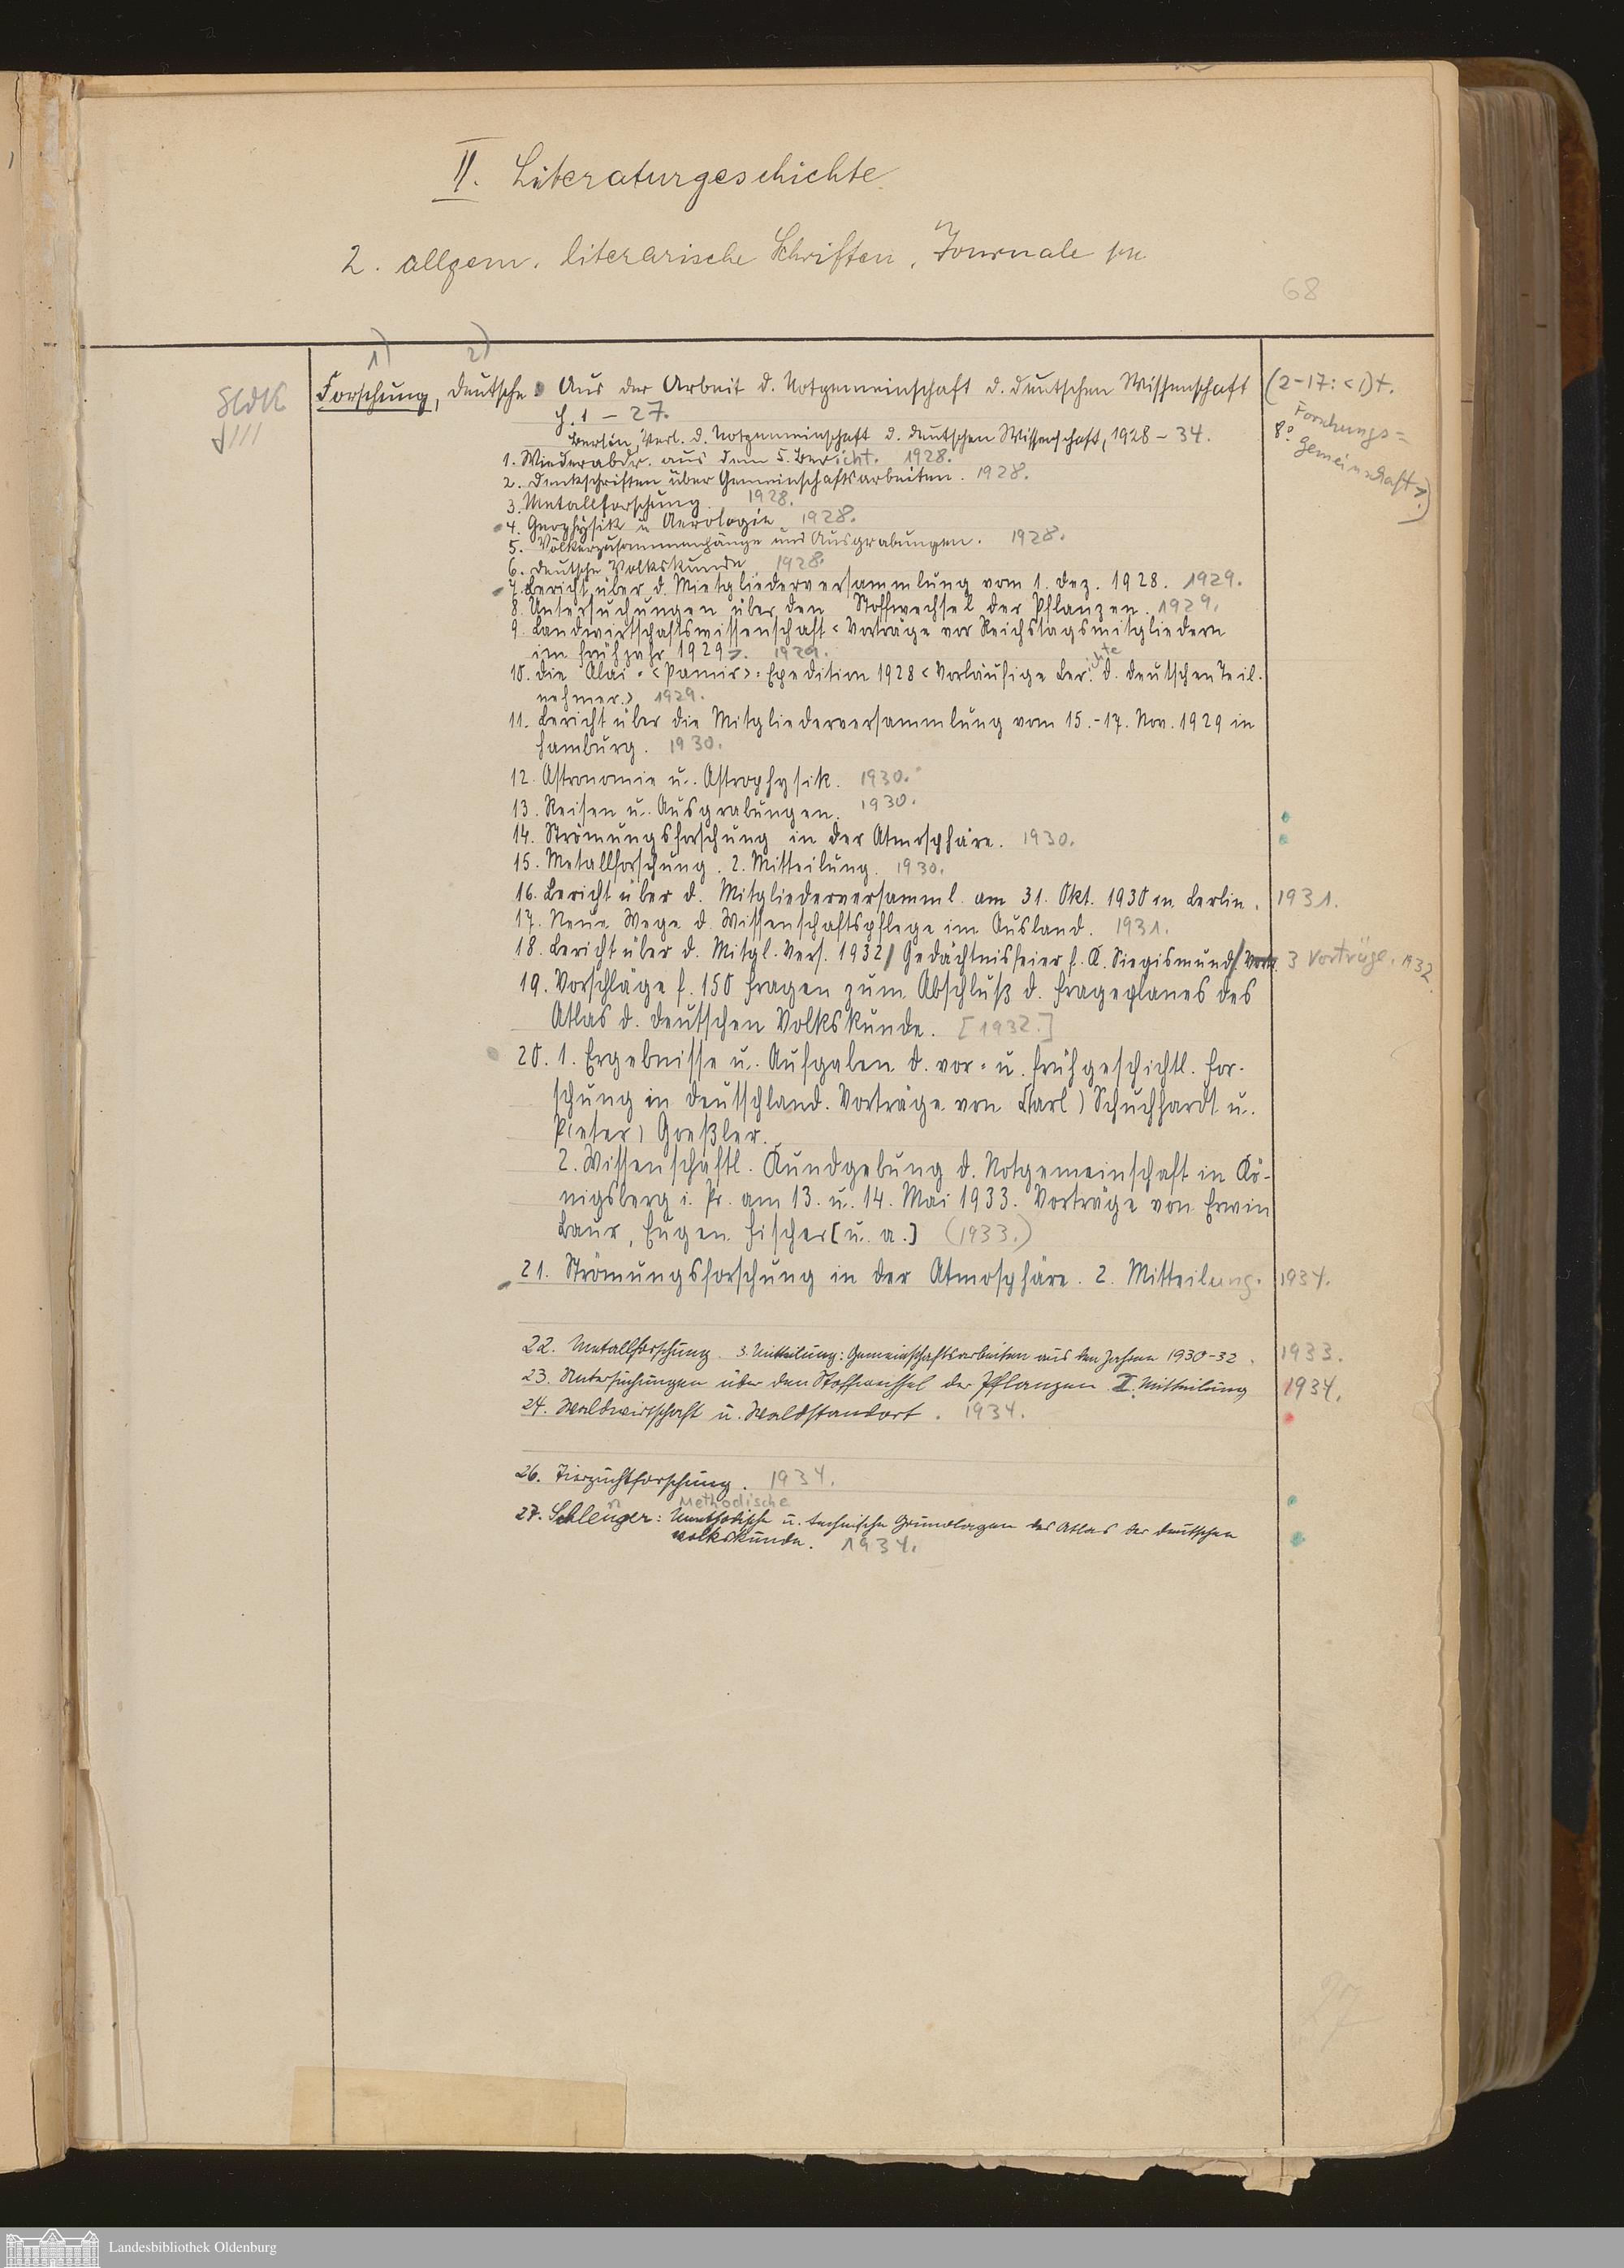 II. Literaturgeschichte.
2. allgem. literarische Schriften, Journale pp.
68
1) 2)
Forschung, Deutsche. Aus der Arbeit d. Notgemeinschaft d. Deutschen Wissenschaft (2-17: < D)t.
H. 1 - 27.
Forschungs=
gemeinschaft>)
Berlin, Verl. d. Notgemeinschaft d. Deutschen Wissenschaft, 1928 - 34. 8°
1. Wiederabdr. aus dem 5. Bericht. 1928.
2. Denkschriften über Gemeinschaftsarbeiten. 1928.
3. Metallforschung. 1928.
4. Geophysik u. Aerologie. 1928.
5. Völkerzusammenhänge und Ausgrabungen. 1928.
6. Deutsche Volkskunde. 1928.
7. Bericht über d. Mietgliederversammlung vom 1. Dez. 1928. 1929.
8. Untersuchungen über den Stoffwechsel der Pflanzen. 1929.
9. Landwirtschaftswissenschaft < Vorträge vor Reichstagsmitgliedern
im Frühjahr 1929 >. 1929.
10. Die Alai = <Pamir> = Expedition 1928 < Vorläufige Berichte d. deutschen Teil-
nehmer.> 1929.
11. Bericht über die Mitgliederversammlung vom 15.-17. Nov. 1929 in
Hamburg. 1930.
12. Astronomie u. Astrophysik. 1930.
13. Reisen u. Ausgrabungen. 1930.
14. Strömungsforschung in der Atmosphäre. 1930.
15. Metallforschung. 2. Mitteilung. 1930.
16. Bericht über d. Mitgliederversamml. am 31. Okt. 1930 in Berlin. 1931.
17. Neue Wege d. Wissenschaftspflege im Ausland. 1931.
18. Bericht über d. Mitgl. Vers. 1932 / Gedächtnisfeier f. K. Siegismund / 3 Vorträge. 1932.
19. Vorschläge f. 150 Fragen zum Abschluß d. Frageplanes des
Atlas d. deutschen Volkskunde. [1932.]
20. 1. Ergebnisse u. Aufgaben d. vor- u. frühgeschichtl. For-
schung in Deutschland. Vorträge von C(arl) Schuchhardt u.
P(eter) Goeßler.
2. Wissenschaftl. Kundgebung d. Notgemeinschaft in Kö-
nigsberg i. Pr. am 13. u. 14. Mai 1933. Vorträge von Erwin
Baur, Eugen Fischer [u. a.] (1933.)
21. Strömungsforschung in der Atmosphäre. 2. Mitteilung. 1934.
22. Metallforschung. 3. Mitteilung: Gemeinschaftsarbeiten aus den Jahren 1930-32. 1933.
23. Untersuchungen über den Stoffwechsel der Pflanzen. II. Mitteilung 1934.
24. Waldwirtschaft u. Waldstandort. 1934.
26. Tierzuchtforschung. 1934.
Methodische
27. Schlenger: Methodische u. technische Grundlagen des Atlas der deutschen
Volkskunde. 1934.
27
Landesbibliothek Oldenburg